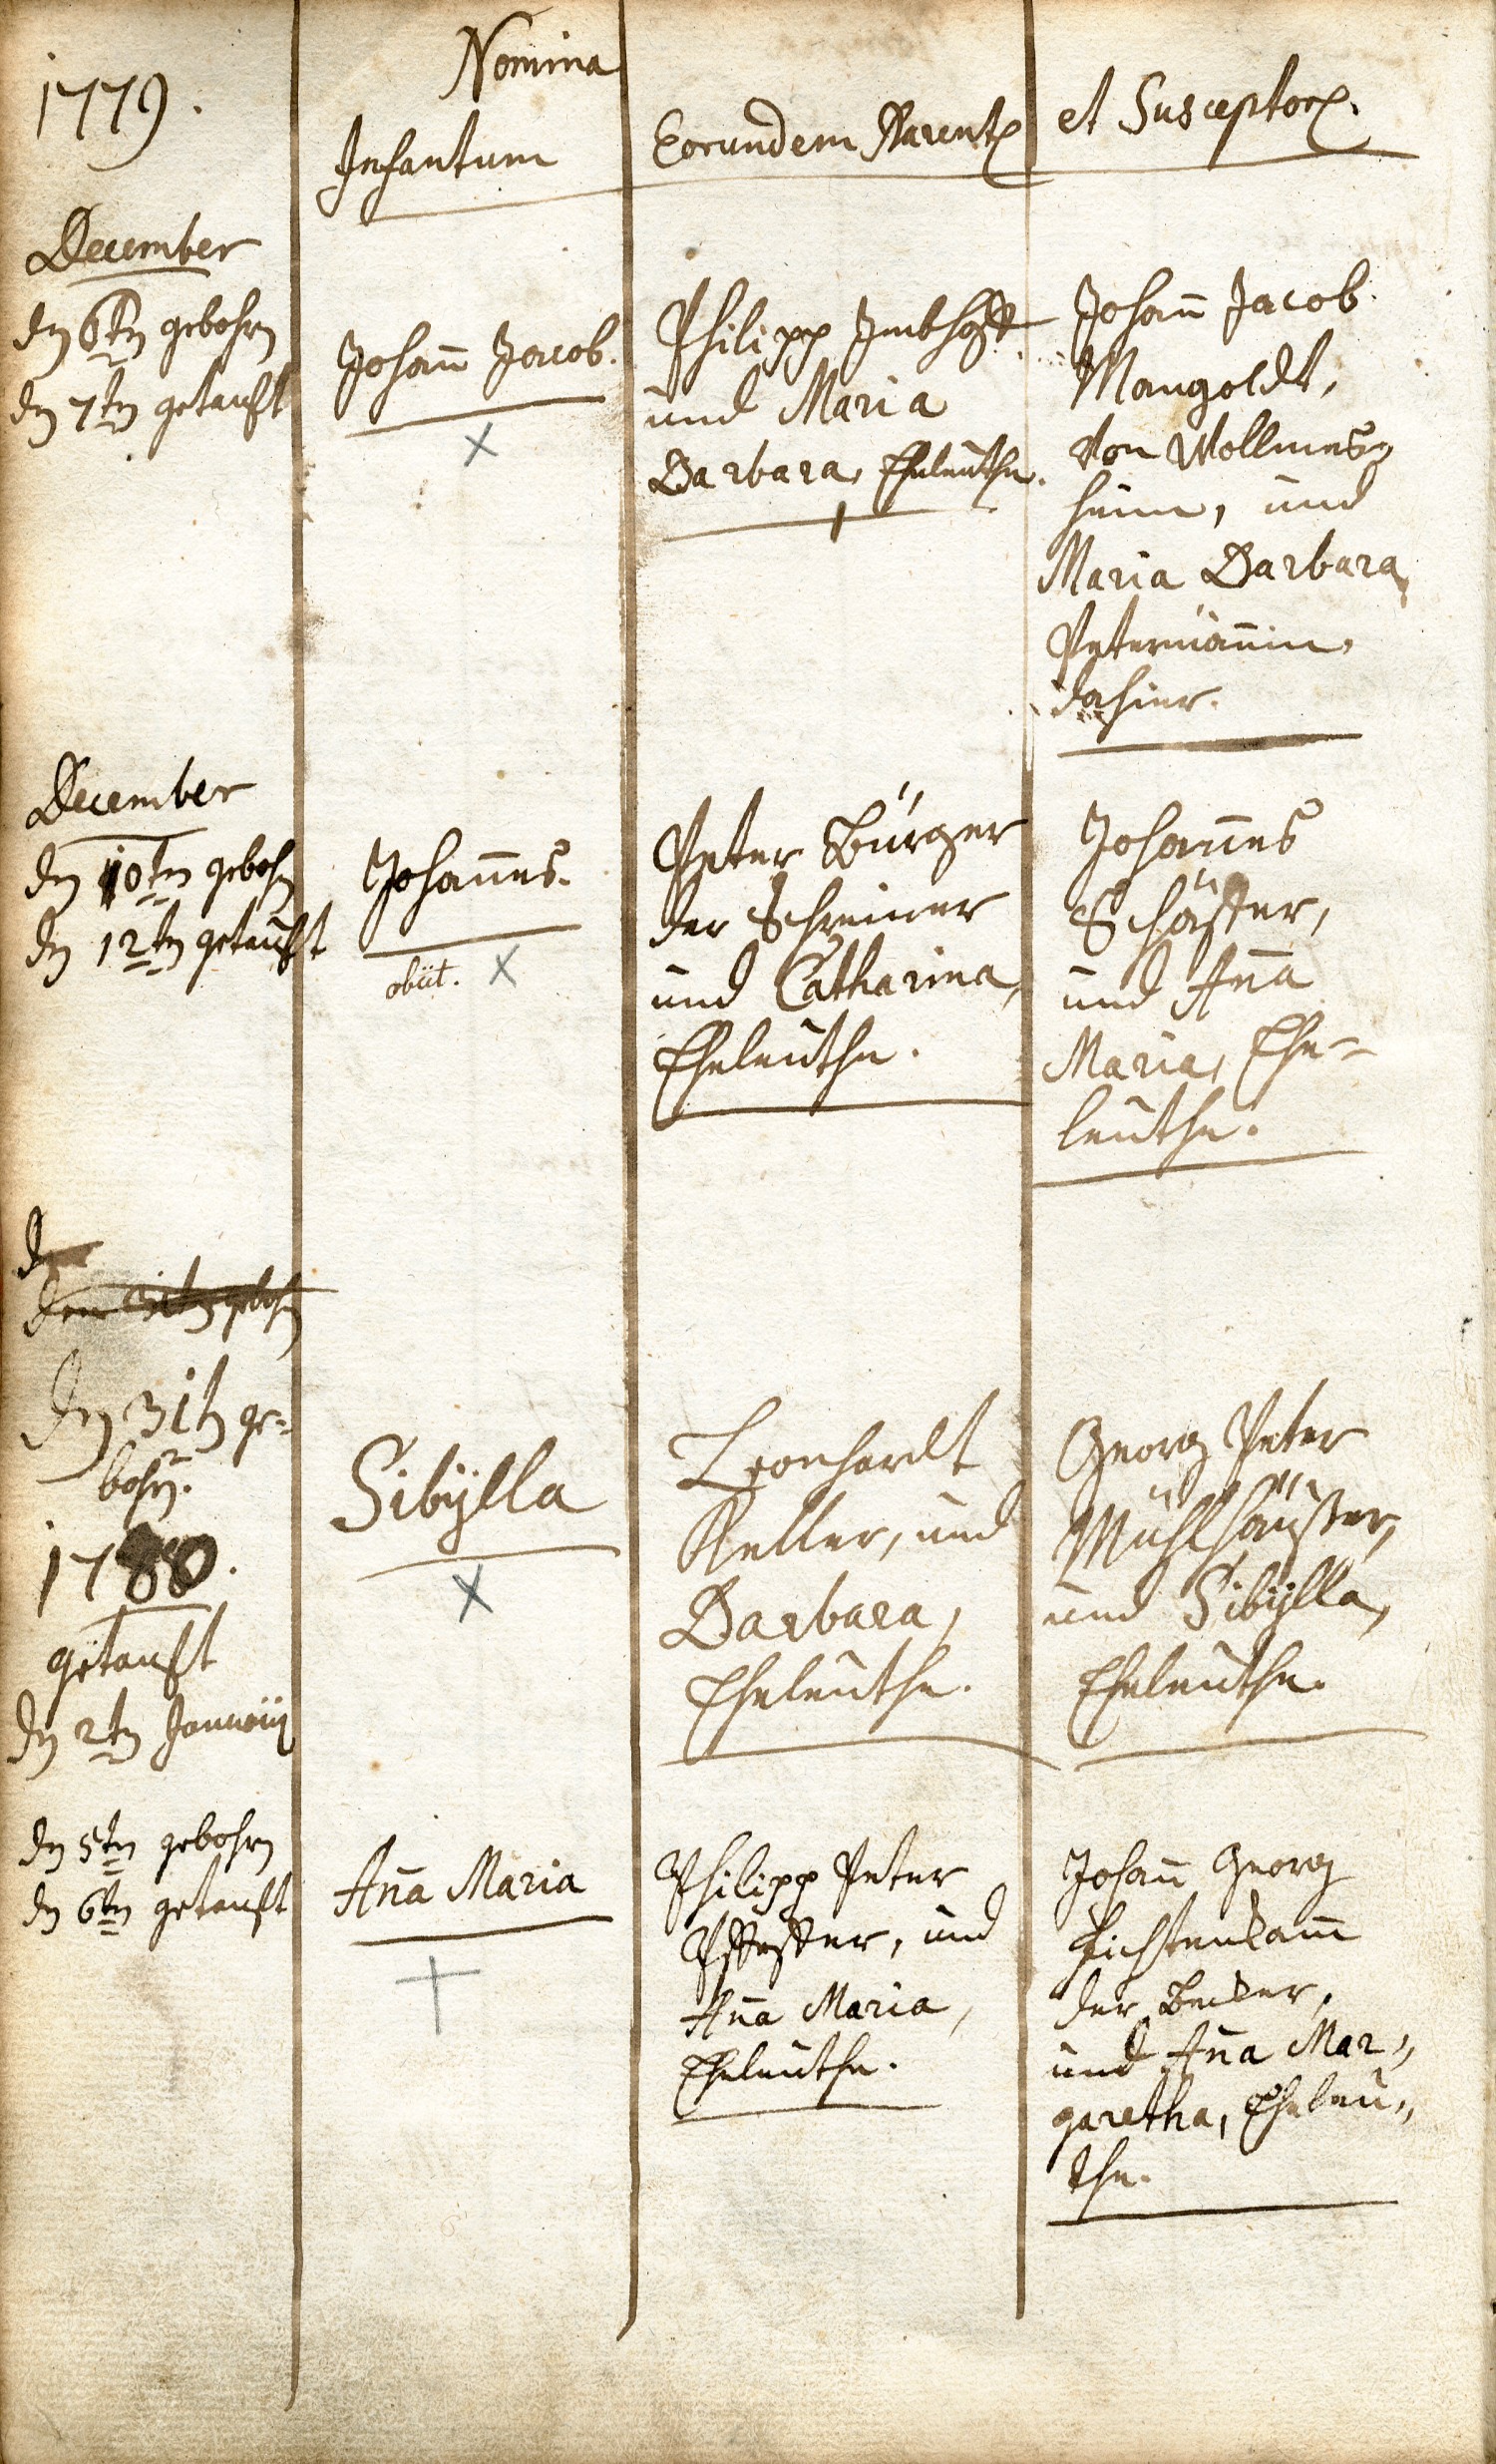 1779.
Nomina
Infantum
Eorundem Parent.
et Susceptor.
December
den 6ten gebohren
den 7ten getauft
Johann Jacob.
Philipp Imbhoff
und Maria
Barbara, Eheleuthe.
Johann Jacob
Mangoldt,
von Wollmes-
heim, und
Maria Barbara
Petermännin,
dahier.
December
den 10ten gebohren
den 12ten getauft
Johannes.
obiit.
Peter Bürger
der Schreiner
und Catharina,
Eheleuthe.
Johannes
Schäffer,
und Anna
Maria, Ehe-
leuthe.
den 31ten ge-
bohren.
1780.
getauft
den 2ten Januarij
Sibÿlla
Leonhardt
Keller, und
Barbara,
Eheleuthe.
Georg Peter
Mühlhäußer,
und Sibÿlla,
Eheleuthe.
den 5ten gebohren
den 6ten getauft
Anna Maria
Philipp Peter
Pfeffer, und
Anna Maria,
Eheleuthe.
Johann Georg
Fichtenkamm
der Becker,
und Anna Mar-
garetha, Eheleu-
the.